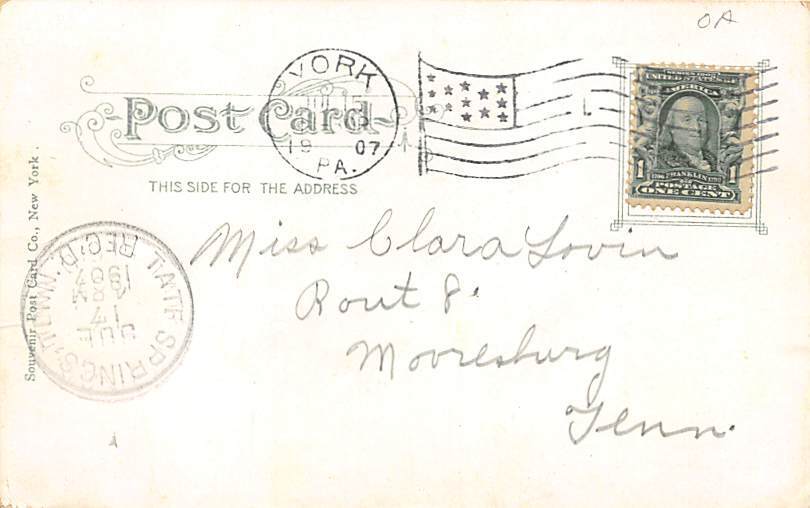 OA
YORK
19 07
PA.
SERIES 1902
UNITED STATES OF
AMERICA
1706 FRANKLIN 1790
POSTAGE
1 ONE CENT 1
Post Card
THIS SIDE FOR THE ADDRESS
Miss Clara Lovin
Rout 8.
Mooresburg
Tenn.
TATE SPRINGS, TENN.
REC'D.
17
Souvenir Post Card Co., New York.